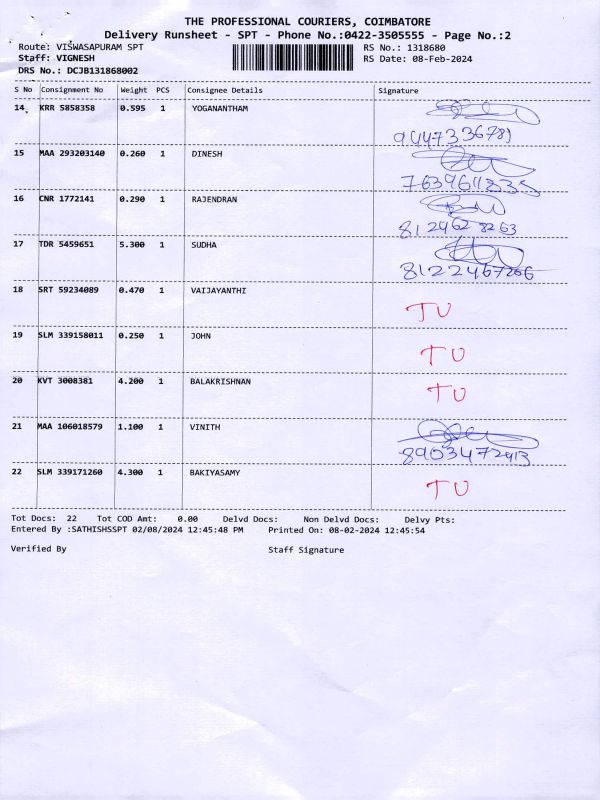 THE PROFESSIONAL COURIERS, COIMBATORE
Delivery Runsheet - SPT - Phone No.:0422-3505555 - Page No.:2
Route: VISWASAPURAM SPT RS No.: 1318680
Staff: VIGNESH RS Date: 08-Feb-2024
DRS No.: DCJB131868002
S No Consignment No Weight PCS Consignee Details Signature
14 KRR 5858358 0.595 1 YOGANANTHAM
15 MAA 293203140 0.260 1 DINESH
16 CNR 1772141 0.290 1 RAJENDRAN
8124628263
17 TDR 5459651 5.300 1 SUDHA
8122467266
18 SRT 59234089 0.470 1 VAIJAYANTHI
TU
19 SLM 339158011 0.250 1 JOHN
TU
20 KVT 3008381 4.200 1 BALAKRISHNAN
TU
21 MAA 106018579 1.100 1 VINITH
8903472413
22 SLM 339171260 4.300 1 BAKIYASAMY
TU
Tot Docs: 22 Tot COD Amt: 0.00 Delvd Docs: Non Delvd Docs: Delvy Pts:
Entered By :SATHISHSSPT 02/08/2024 12:45:48 PM Printed On: 08-02-2024 12:45:54
Verified By Staff Signature